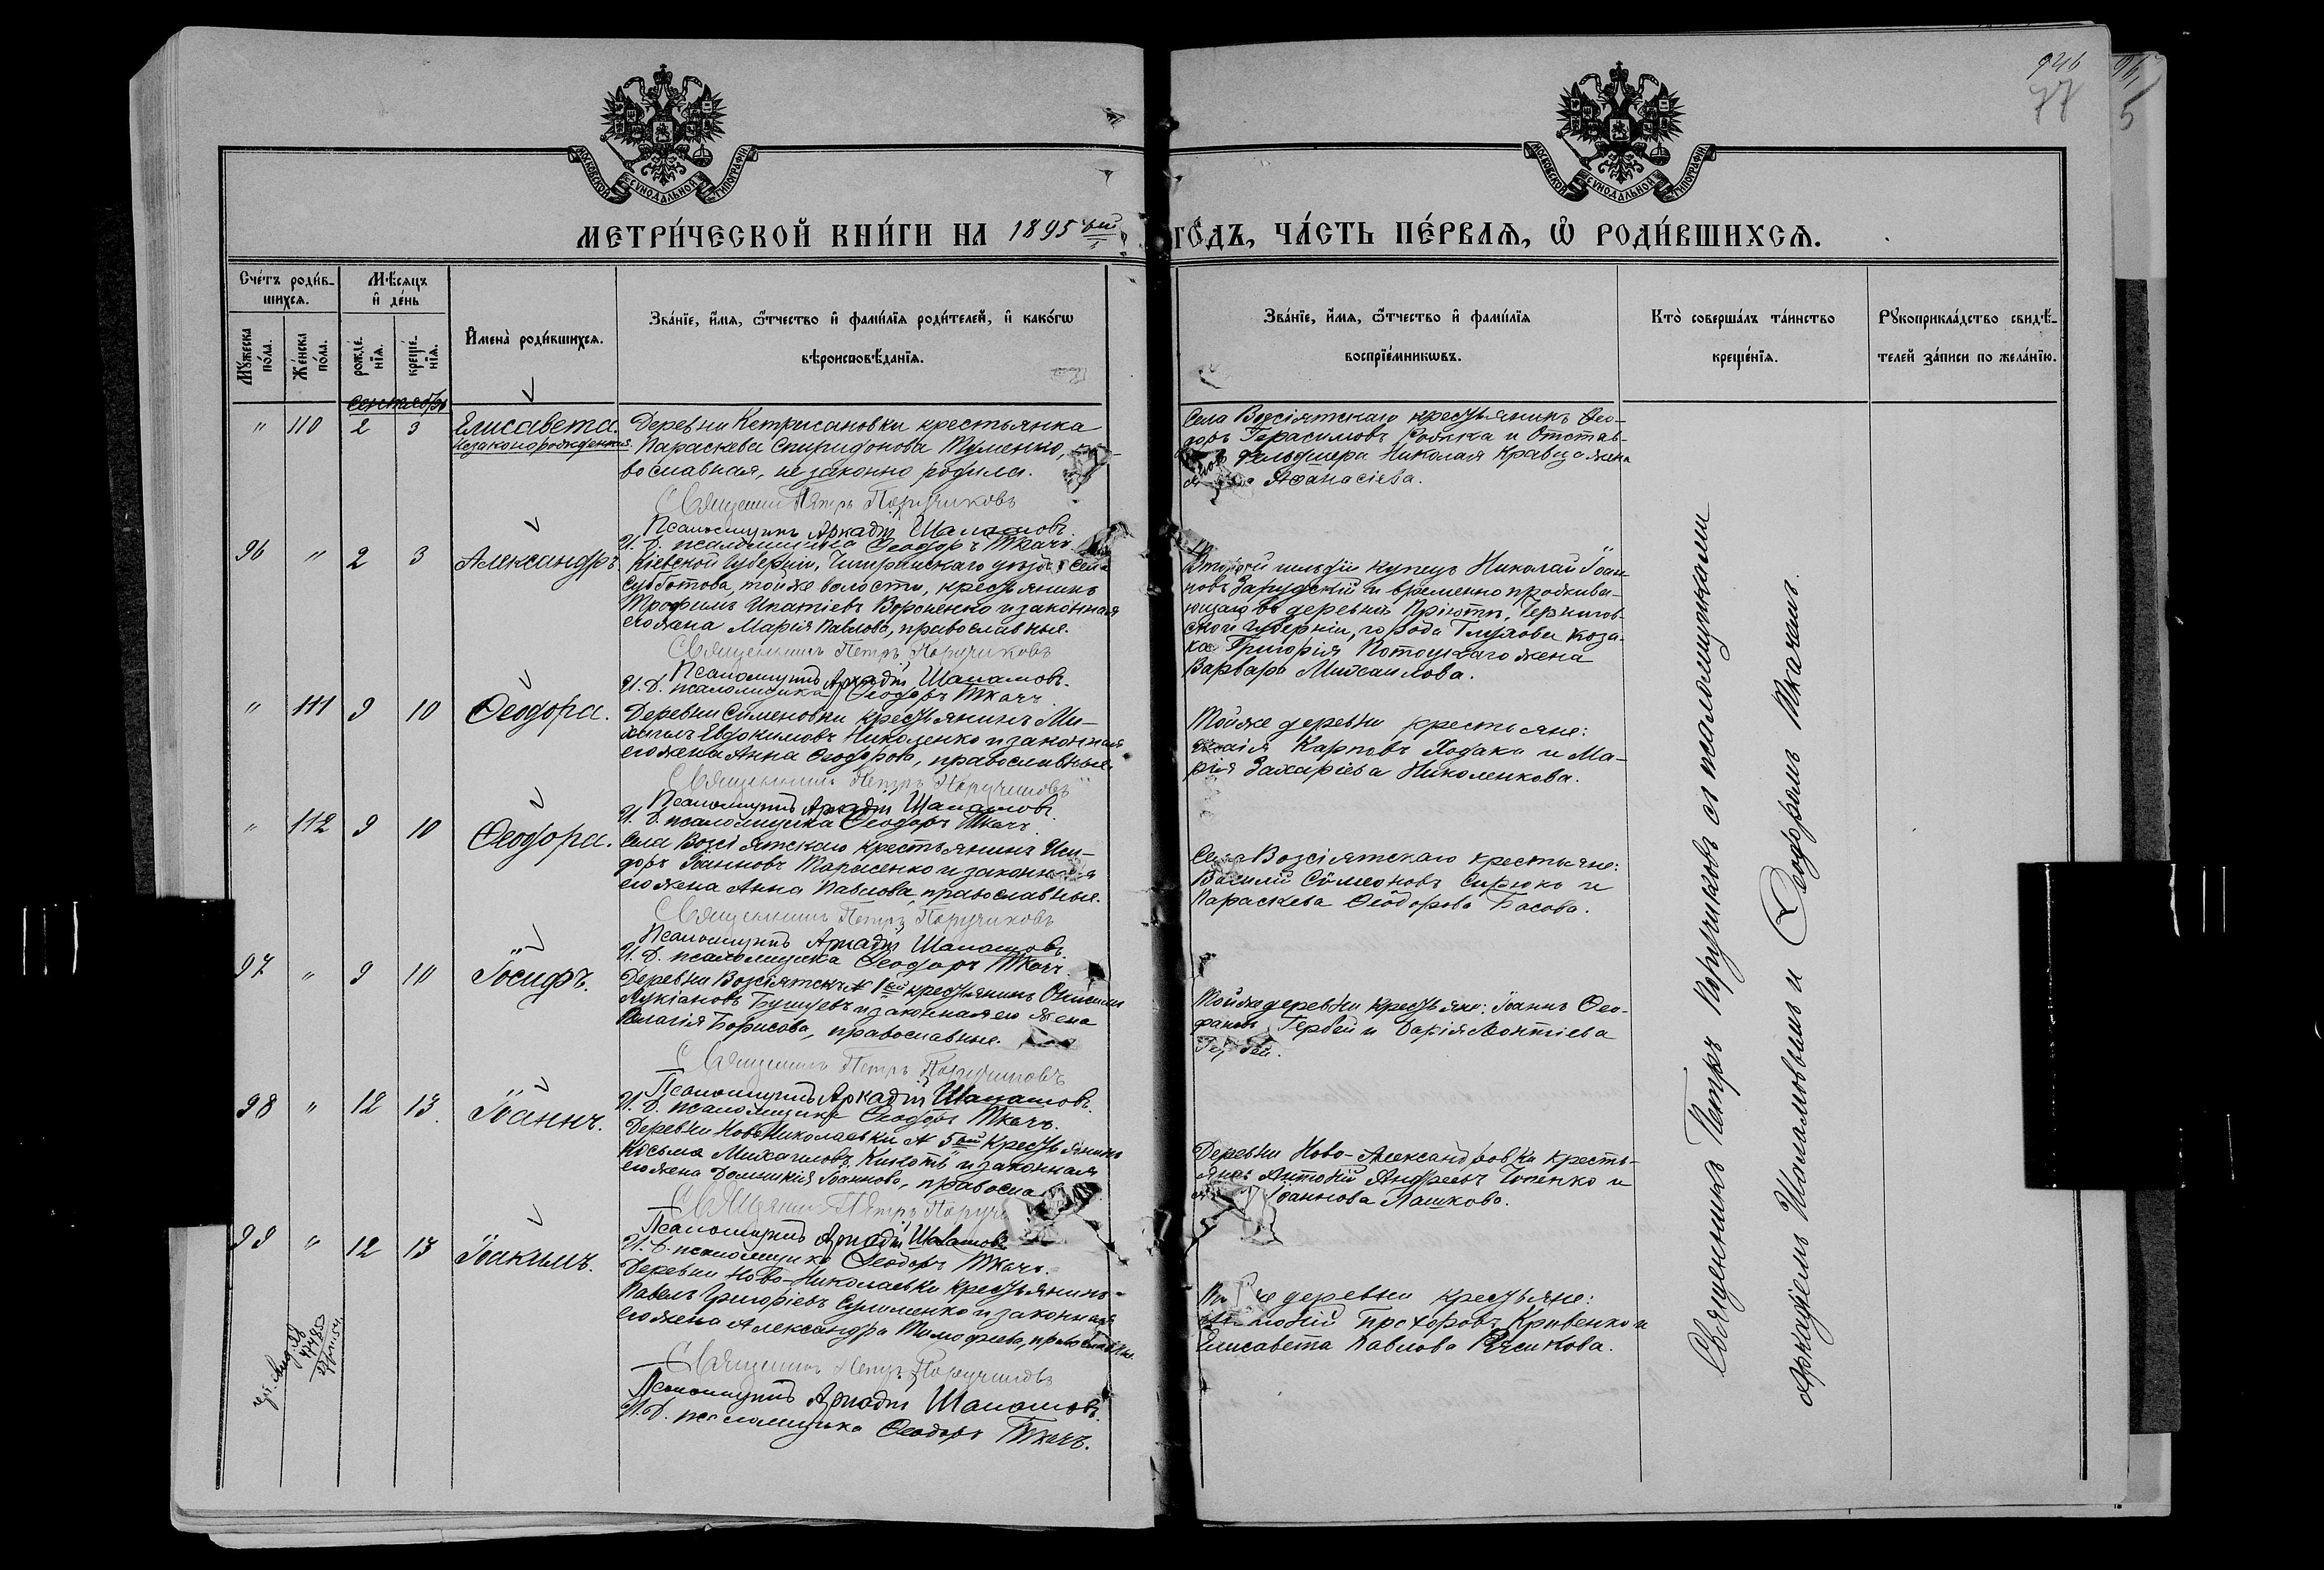 946
77
96
5
МОСКОВСКОЙ СѴНОДАЛЬНОЙ ТИПОГРАФІИ
МОСКОВСКОЙ СѴНОДАЛЬНОЙ ТИПОГРАФІИ
МЕТРИ́ЧЕСКОЙ КНИ́ГИ НА 1895 ый ГО́ДЪ, ЧА́СТЬ ПЕ́РВАѦ, Ѡ҆ РОДИ́ВШИХСѦ.
Сче́тъ роди́в-
шихсѧ.
Мꙋ́жеска по́ла.
Же́нска по́ла.
Мѣ́сѧцъ
и҆ де́нь
рожде́нїѧ.
креще́нїѧ.
И҆мена̀ роди́вшихсѧ.
Зва́нїе, и҆́мѧ, ѻ҆́тчество и҆ фами́лїѧ роди́телей, и҆ како́гѡ
вѣроисповѣ́данїѧ.
Зва́нїе, и҆́мѧ, ѻ҆́тчество и҆ фами́лїѧ
воспрїе́мникѡвъ.
Кто̀ соверша́лъ та́инство
креще́нїѧ.
Рꙋкоприкла́дство свидѣ́-
телей за́писи по жела́нїю.
Сентябрь
" 110 2 3 Елисавета.
Незаконорожденная.
Деревни Кетрисановки крестьянка
Параскева Спиридонова Туменко,
вославная, незаконно родила.
Священникъ Петръ Поручиковъ
Псаломщикъ Аркадій Шаламовъ.
И. Д. псаломщика Ѳеодоръ Ткачъ.
Села Возсіятскаго крестьянинъ Ѳео-
доръ Герасимовъ и Отстав-
фельдшера Николая Кравца жена
Аѳанасіева.
96 " 2 3 Александръ.
Кіевской Губерніи, Чигиринскаго уѣзда села
Субботова, тойже волости, крестьянинъ
Трофимъ Ипатіевъ Вороненко и законная
его жена Марія Павлова, православные.
Священникъ Петръ Поручиковъ
Псаломщикъ Аркадій Шаламовъ.
И. Д. псаломщика Ѳеодоръ Ткачъ.
Второй гильдіи купецъ Николай Іоан-
новъ Зарудскій и временно проживаю-
щаго въ деревнѣ Пріютъ, Чернигов-
ской Губерніи, города Глухова коза-
ка Григорія Потоцкаго жена
Варвара Михаилова.
" 111 9 10 Ѳеодора.
Деревни Сименовки крестьянинъ Ми-
хаилъ Евдокимовъ Николенко и законная
его жена Анна Ѳеодорова, православные.
Священникъ Петръ Поручиковъ
Псаломщикъ Аркадій Шаламовъ.
И. Д. псаломщика Ѳеодоръ Ткачъ.
Тойже деревни крестьяне:
Карповъ и Ма-
рія Захаріева Николенкова.
" 112 9 10 Ѳеодора.
Села Возсіятскаго крестьянинъ Иси-
доръ Іоанновъ Тарасенко и законная
его жена Анна Павлова, православные.
Священникъ Петръ Поручиковъ
Псаломщикъ Аркадій Шаламовъ.
И. Д. псаломщика Ѳеодоръ Ткачъ.
Села Возсіятскаго крестьяне:
Василій Сѵмеоновъ Сирюкъ и
Параскева Ѳеодорова Басова.
97 " 9 10 Іосифъ.
Деревни Возсіятск № 1ый крестьянинъ Онисимъ
Лукіановъ Бушуевъ и законная его жена
Пелагія Борисова, православные.
Священникъ Петръ Поручиковъ
Псаломщикъ Аркадій Шаламовъ.
И. Д. псаломщика Ѳеодоръ Ткачъ.
Тойже деревни крестьяне: Іоаннъ Ѳео-
фановъ Гербей и Дарія Леонтіева
98 " 12 13. Іоаннъ.
Деревни Ново Николаевки № 5ый крестьянинъ
Косьма Михаиловъ и законная
его жена Домникія Іоаннова, правосла
Священникъ Петръ Поруч
Псаломщикъ Аркадій Шаламовъ
И. Д. псаломщика Ѳеодоръ Ткачъ.
Деревни Ново-Александровки кресть-
яне: Антоній Андреевъ и
Іоаннова Лашкова.
99 " 12 13 Іоакимъ.
Деревни Ново-Николаевки крестьянинъ
Павелъ Григоріевъ Сулименко и законная
его жена Александра Тимофеева, православные.
Священникъ Петръ Поручиковъ
Псаломщикъ Аркадій Шаламовъ.
И. Д. псаломщика Ѳеодоръ Ткачъ.
же деревни крестьяне:
Прохоровъ Кривенко и
Елисавета Павлова
Священникъ Петръ Поручиковъ съ псаломщиками
Аркадіемъ Шаламовымъ и Ѳеодоромъ Ткачемъ.